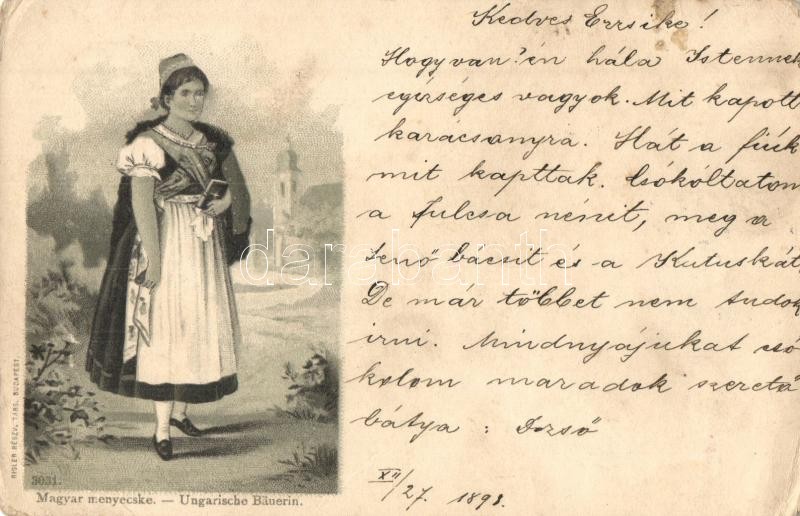 Kedves Erzsike!
Hogy van? én hála Istennek
egérséges vagyok. Mit kapott
karácsonyra. Hát a fiúk
mit kapttak. Csókóltatom
a Julcsa nénit, meg a
Jenő bácsit és a Kutuskát
De már többet nem tudok
irni. Mindnyájukat csó
kolom maradok szerető
bátya: Dezső
XII/27. 1898.
RIGLER RÉSZV. TÁRS. BUDAPEST.
3031.
Magyar menyecske. — Ungarische Bäuerin.
darabanth